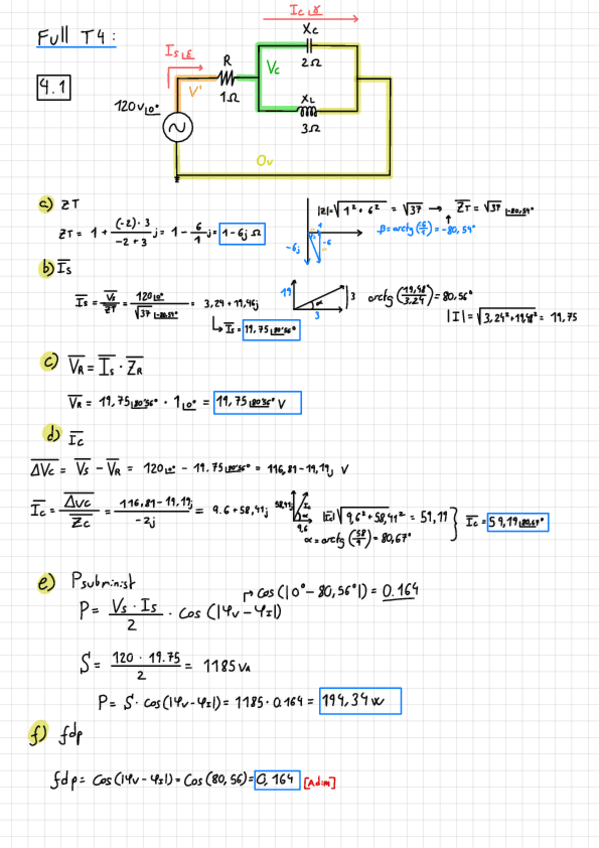 Full T4:
4.1
Ic∠γ
Xc
2Ω
Is∠E
R
1Ω
Vc
V'
120v∠0°
XL
3Ω
0v
a) ZT
ZT = 1 + (-2)·3 / -2+3 j = 1 - 6/1 j = 1-6j Ω
|Z|=√1²+6² = √37 → ZT = √37 ∠-80,54°
β=arctg(6/1) = -80,54°
-6j
-6
b) Is
Is = Vs/ZT = 120∠0° / √37∠-80,54° = 3,24 + 19,46j
↳ Is = 19,75∠80'56°
19
α
3
3
arctg(19,58/3,24) = 80,56°
|I| = √3,24²+19,48² = 19,75
c) VR = Is · ZR
VR = 19,75∠80'56° · 1∠0° = 19,75∠80'56° V
d) Ic
ΔVc = Vs - VR = 120∠0° - 19.75∠80'56° = 116,81-19,19j V
Ic = ΔVc / Zc = 116,81-19,19j / -2j = 9.6 + 58,41j
9,6
α
|Ic| √9,6²+58,41² = 59,19
α = arctg(58/9) = 80,67°
Ic = 59,19∠80,67°
e) Psubminist
P = Vs · Is / 2 · cos(|φv-φI|)
↱ cos(|0°-80,56°|) = 0.164
S = 120 · 19.75 / 2 = 1185 VA
P = S· cos(|φv-φI|) = 1185·0.164 = 194,34w
f) fdp
fdp = cos(|φv-φI|) = cos(80,56) = 0,164 [Adim]